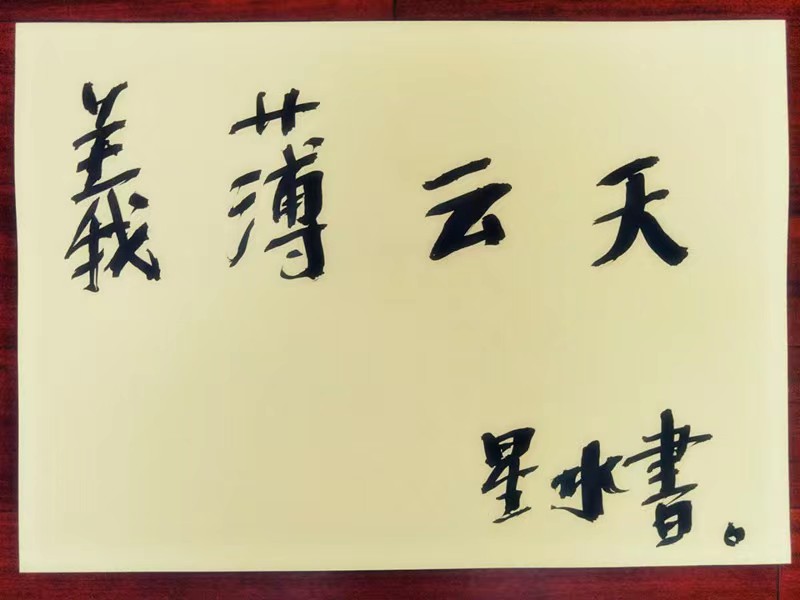 義薄云天
星水書。